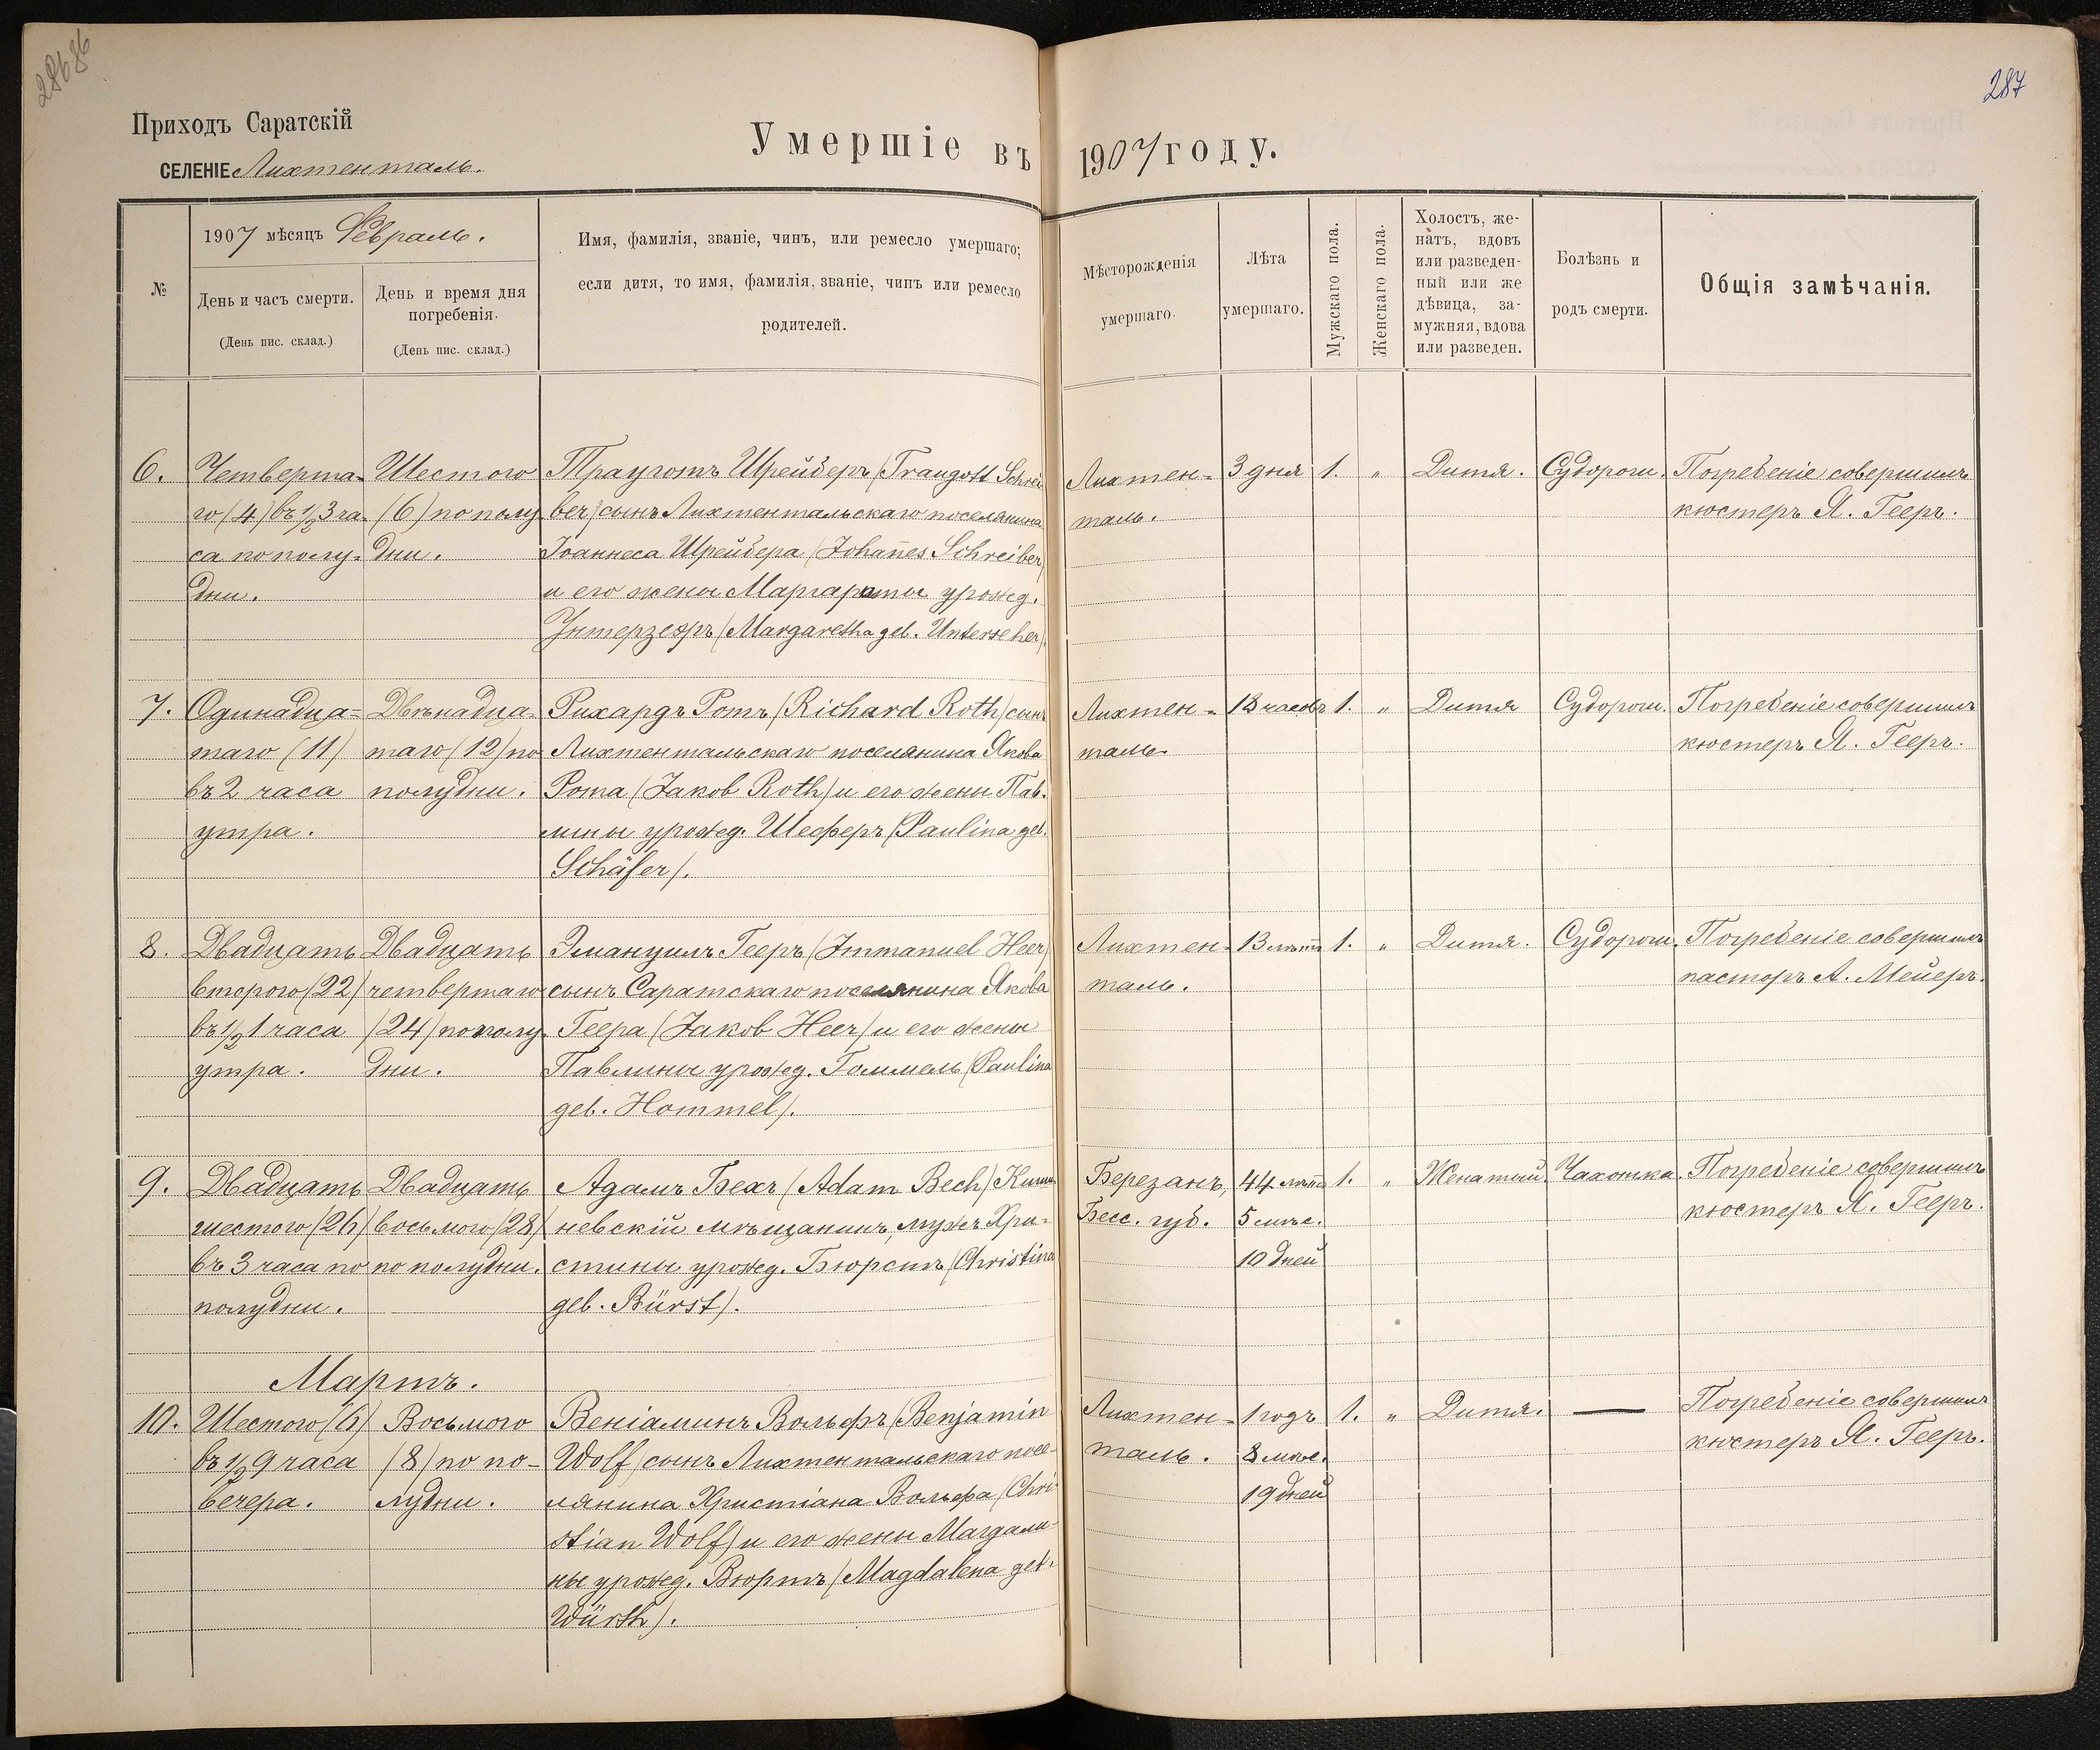 287
Приходъ Саратскій
СЕЛЕНІЕ Лихтенталь.
Умершіе въ 1907 году.
№
1907 мѣсяцъ Февраль.
День и часъ смерти.
(День пис. склад.)
День и время дня
погребенія.
(День пис. склад.)
Имя, фамилія, званіе, чинъ, или ремесло умершаго;
если дитя, то имя, фамилія, званіе, чинъ или ремесло
родителей.
Мѣсторожденія
умершаго.
Лѣта
умершаго.
Мужскаго пола.
Женскаго пола.
Холостъ, же-
натъ, вдовъ
или разведен-
ный или же
дѣвица, за-
мужняя, вдова
или разведен.
Болѣзнь и
родъ смерти.
Общія замѣчанія.
6.
Четверта-
го (4) въ 1/2 3 ча-
са по полу-
дни.
Шестого
(6) по полу
дни.
Траугота Шрейберъ (Traugott Schrei
ber) сынъ Лихтентальскаго поселянина
Іоаннеса Шрейбера (Johannes Schreiber)
и его жены Маргараты урожд.
Унтерзехръ (Margaretha geb. Unterseher).
Лихтен-
таль.
3 дня
1.
"
Дитя.
Судороги.
Погребеніе совершилъ
кюстеръ Я. Гееръ.
7.
Одинадца-
таго (11)
въ 2 часа
утра.
Двѣнадца-
таго (12) по
полудни.
Рихардъ Ротъ (Richard Roth) сынъ
Лихтентальскаго поселянина Якова
Рота (Jakob Roth) и его жены Пав-
лины урожд. Шеферъ (Paulina geb.
Schäfer).
Лихтен-
таль.
18 часовъ
1.
"
Дитя
Судороги.
Погребеніе совершилъ
кюстеръ Я. Гееръ.
8.
Двадцать
второго (22)
въ 1/2 1 часа
утра.
Двадцать
четвертаго
(24) по полу-
дни.
Эмануилъ Гееръ (Immanuel Heer)
сынъ Саратскаго поселянина Якова
Геера (Jakob Heer) и его жены
Павлины урожд. Гоммель (Paulina
geb. Hommel).
Лихтен-
таль.
13 лѣтъ
1.
"
Дитя.
Судороги.
Погребеніе совершилъ
пасторъ А. Мейеръ.
9.
Двадцать
шестого (26)
въ 3 часа по
полудни.
Двадцать
восьмого (28)
по полудни.
Адамъ Бехъ (Adam Bech) Киши
невскій мѣщанинъ, мужъ Хри-
стины урожд. Бюрстъ (Christina
geb. Bürst).
Березанъ,
Бесс. губ.
44 лѣтъ
5 мѣс.
10 дней
1.
"
Женатый.
Чахотка.
Погребеніе совершилъ
кюстеръ Я. Гееръ.
Мартъ.
10.
Шестого (6)
въ 1/2 9 часа
вечера.
Восьмого
(8) по по-
лудни.
Веніаминъ Вольфъ (Benjamin
Wolf) сынъ Лихтентальскаго посе-
лянина Христіана Вольфа (Chri-
stian Wolf) и его жены Магдали-
ны урожд. Вюртъ (Magdalena geb.
Würth).
Лихтен-
таль.
1 годъ
8 мѣс.
19 дней
1.
"
Дитя.
—
Погребеніе совершилъ
кюстеръ Я. Гееръ.